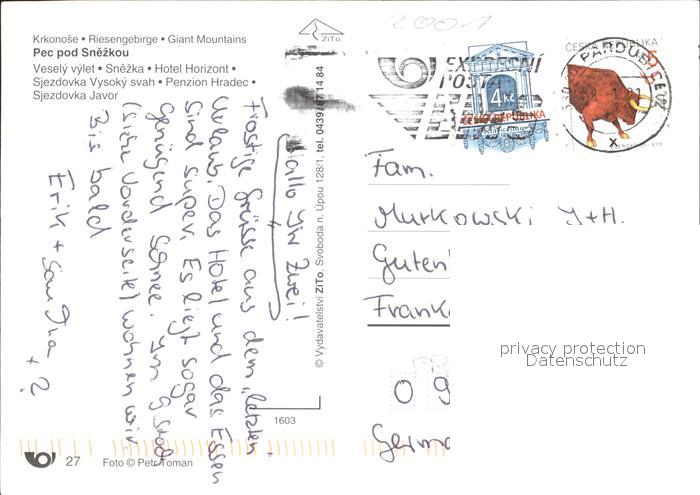 2001
Krkonoše • Riesengebirge • Giant Mountains
Pec pod Sněžkou
Veselý výlet • Sněžka • Hotel Horizont •
Sjezdovka Vysoký svah • Penzion Hradec •
Sjezdovka Javor
ZiTo
© Vydavatelství ZiTo, Svoboda n. Úpou 128/1, tel. 0439/87 14 84
Hallo Ihr Zwei!
Frostige Grüsse aus dem "letzten"
Urlaub. Das Hotel und das Essen
sind super. Es liegt sogar
genügend Schnee. Im 9. Stock
(siehe Vorderseite) wohnen wir.
Bis bald
Erik + Sandra
+ ?
POST
4 Kč
ČESKÁ REPUBLIKA
ČESKÁ REPUBLIKA
PARDUBICE
Fam.
Murkowski J+H.
Guten
Frank
privacy protection
Datenschutz
0 9
Germa
1603
27 Foto © Petr Toman